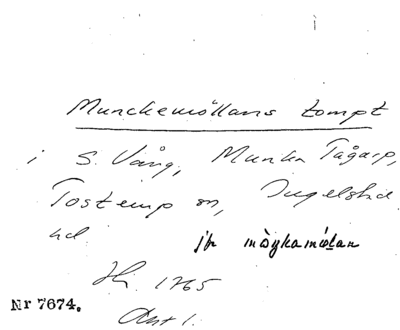 Munckemöllans tompt
i S. Vång, Munka Tågarp,
Tostemp sn, Ingelstad
hd. jfr möŋkamölan
1765
Nr 7674. Akt 1.